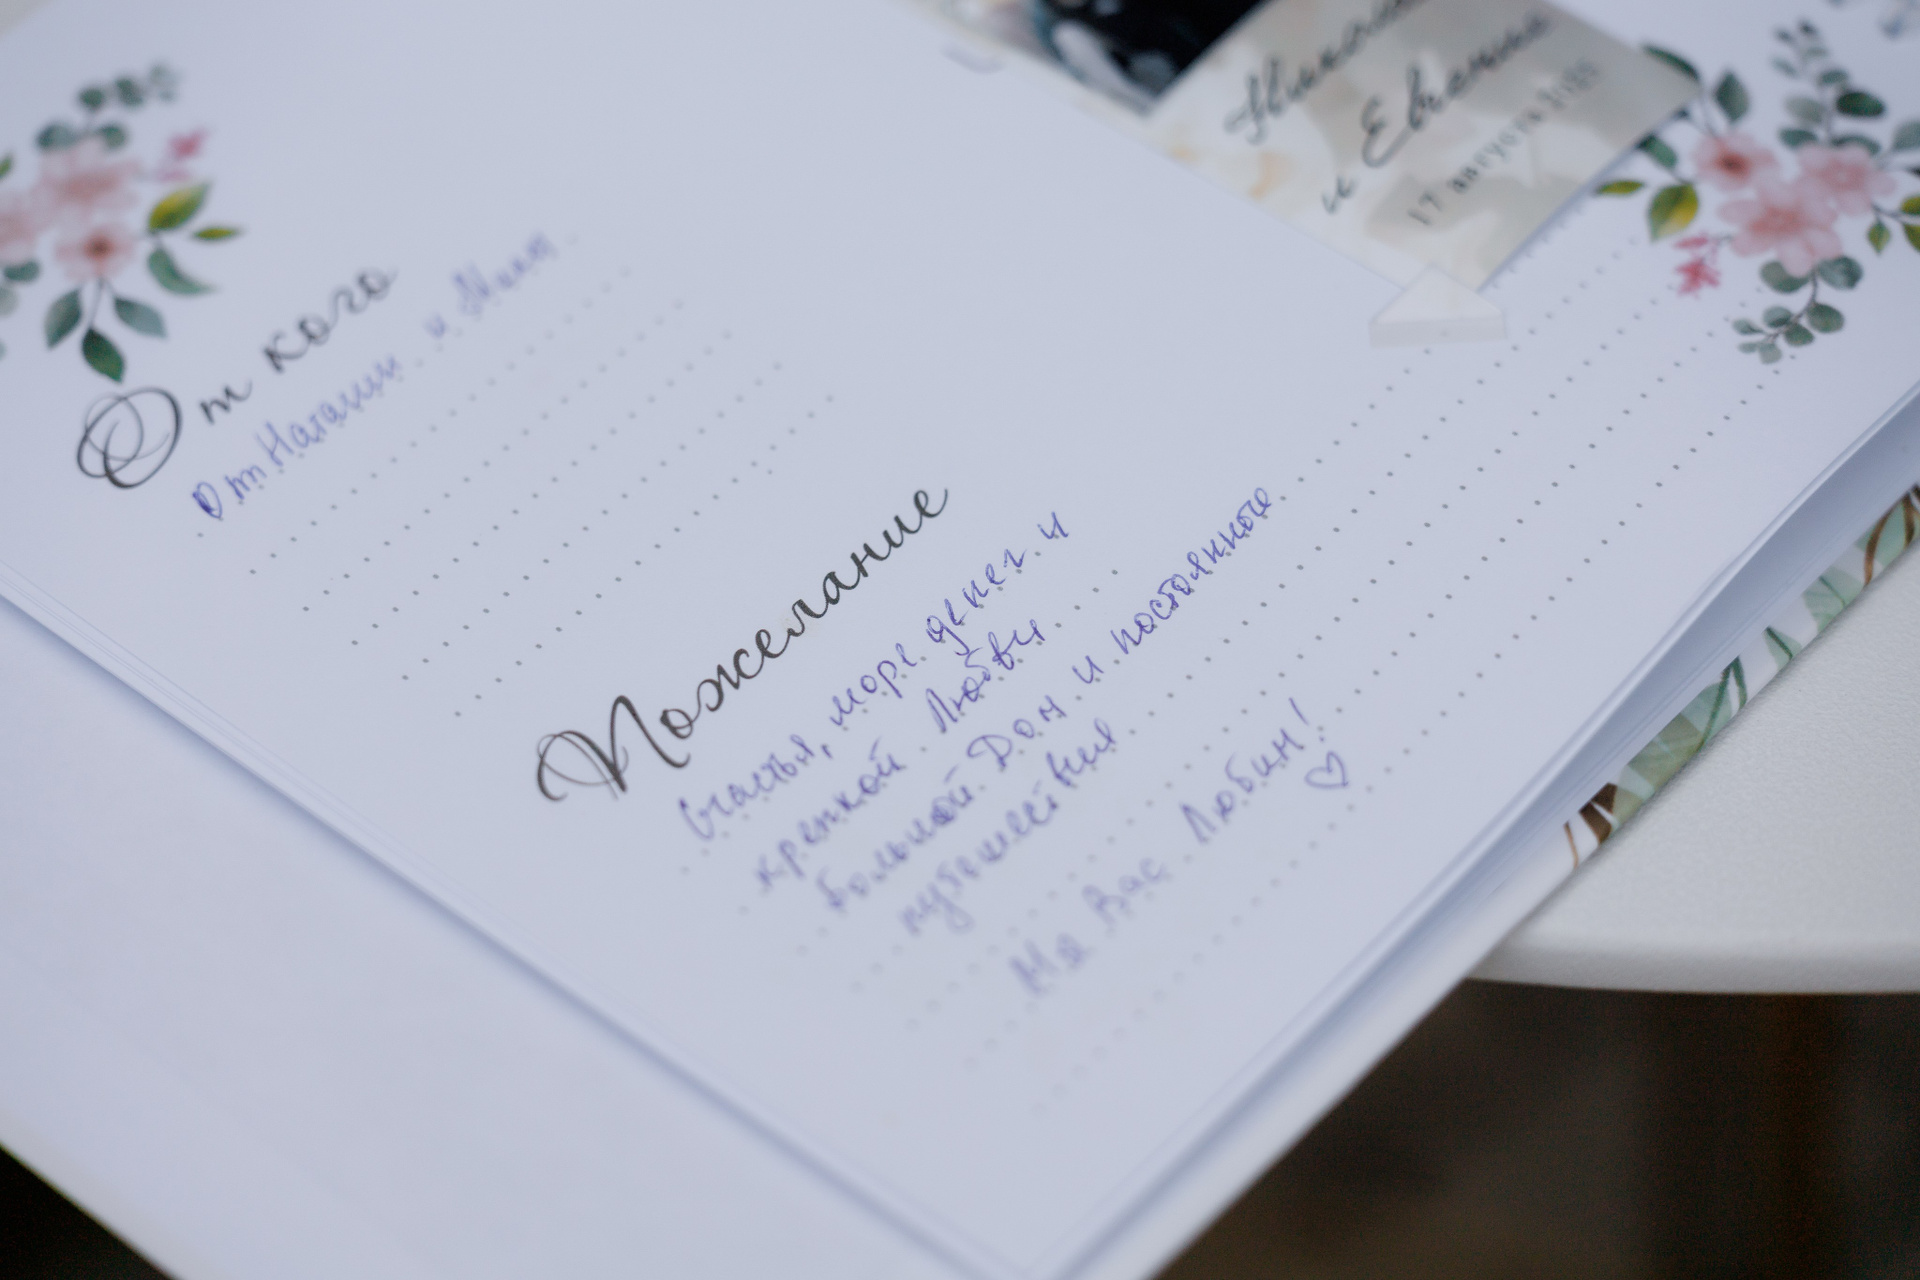 и Евгения
17 августа
От кого
От Наталии и
Пожелание
Счастья, море денег и
крепкой Любви
Большой Дом и постоянные
путешествия
Мы Вас Любим!
♡